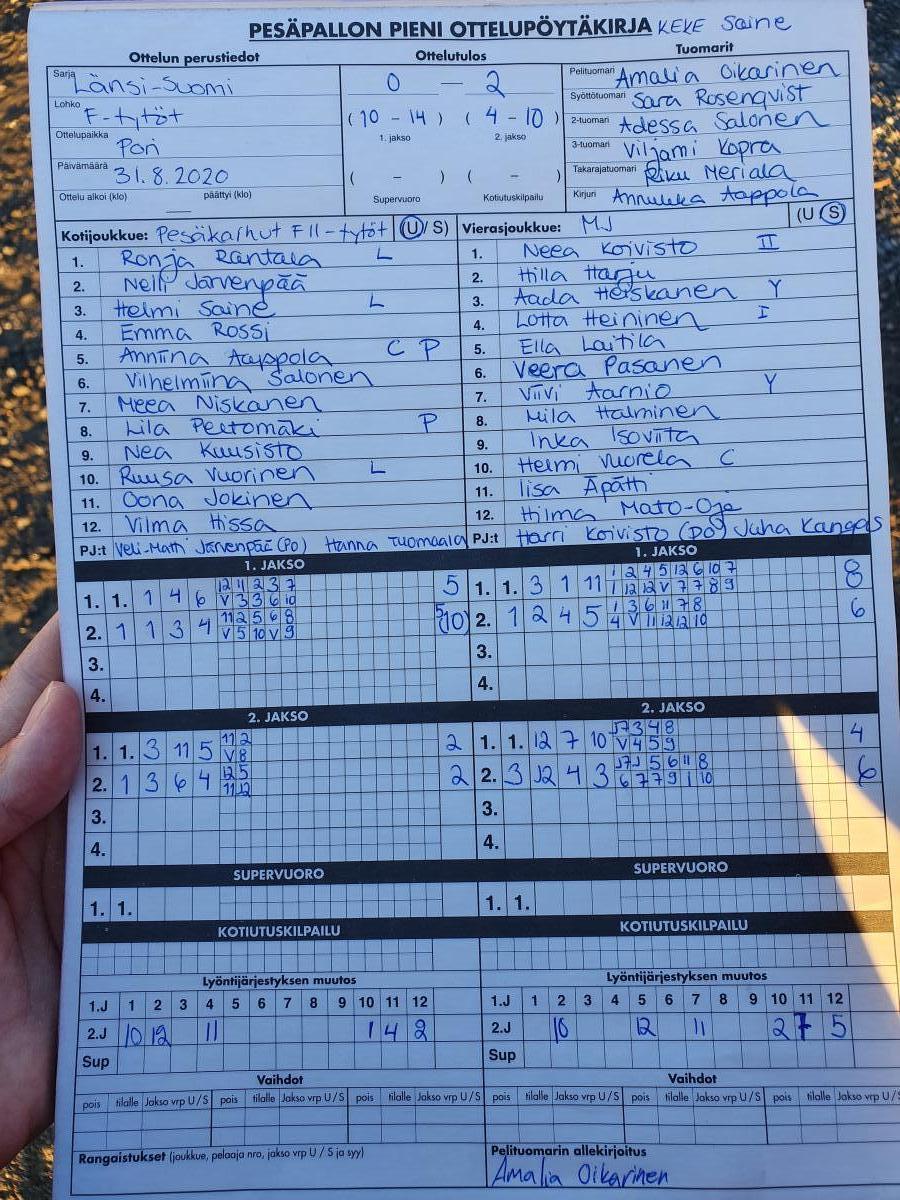 PESÄPALLON PIENI OTTELUPÖYTÄKIRJA KEKE Saine
Ottelun perustiedot Ottelutulos Tuomarit
Sarja Länsi-Suomi 0 — 2 Pelituomari Amalia Oikarinen
Lohko F-tytöt (10 - 14) (4 - 10) Syöttötuomari Sara Rosenqvist
1. jakso 2. jakso 2-tuomari Adessa Salonen
Ottelupaikka Pori 3-tuomari Viljami Kopra
Päivämäärä 31.8.2020 ( - ) ( - ) Takarajatuomari Riku Meriala
Ottelu alkoi (klo) — päättyi (klo) Supervuoro Kotiutuskilpailu Kirjuri Annukka Aappola
Kotijoukkue: Pesäkarhut F11-tytöt (U/S) Vierasjoukkue: MJ (U S)
1. Ronja Rantala L 1. Neea Koivisto II
2. Nelli Järvenpää 2. Hilla Harju
3. Helmi Saine L 3. Aada Heiskanen Y
4. Emma Rossi 4. Lotta Heininen I
5. Anniina Aappola C P 5. Ella Laitila
6. Vilhelmiina Salonen 6. Veera Pasanen
7. Meea Niskanen 7. Viivi Aarnio Y
8. Lila Peltomäki P 8. Mila Halminen
9. Nea Kuusisto 9. Inka Isoviita
10. Ruusa Vuorinen L 10. Helmi Vuorela C
11. Oona Jokinen 11. Iisa Äpätti
12. Vilma Hissa 12. Hilma Mato-Oja
PJ:t Veli-Matti Järvenpää (PO) Hanna Tuomaala PJ:t Harri Koivisto (PO) Juha Kangas
1. JAKSO 1. JAKSO
12 11 2 3 7 1 2 4 5 12 6 10 7
1. 1. 1 4 6 V 3 3 6 10 5 1. 1. 3 1 11 1 12 12 V 7 7 8 9 8
11 2 5 6 8 1 3 6 11 7 8
2. 1 1 3 4 V 5 10 V 9 5 (10) 2. 1 2 4 5 4 V 11 12 12 10 6
3. 3.
4. 4.
2. JAKSO 2. JAKSO
11 2 3 4 8
1. 1. 3 11 5 V 8 2 1. 1. 12 7 10 V 4 5 9 4
12 5 5 6 11 8
2. 1 3 6 4 11 12 2 2. 3 12 4 3 6 7 7 9 1 10 6
3. 3.
4. 4.
SUPERVUORO SUPERVUORO
1. 1. 1. 1.
KOTIUTUSKILPAILU KOTIUTUSKILPAILU
Lyöntijärjestyksen muutos Lyöntijärjestyksen muutos
1.J 1 2 3 4 5 6 7 8 9 10 11 12 1.J 1 2 3 4 5 6 7 8 9 10 11 12
2.J 10 12 11 1 4 2 2.J 10 12 11 2 7 5
Sup Sup
Vaihdot Vaihdot
pois tilalle Jakso vrp U / S pois tilalle Jakso vrp U / S pois tilalle Jakso vrp U / S pois tilalle Jakso vrp U / S pois tilalle Jakso vrp U / S pois tilalle Jakso vrp U / S
Rangaistukset (joukkue, pelaaja nro, jakso vrp U / S ja syy) Pelituomarin allekirjoitus
Amalia Oikarinen